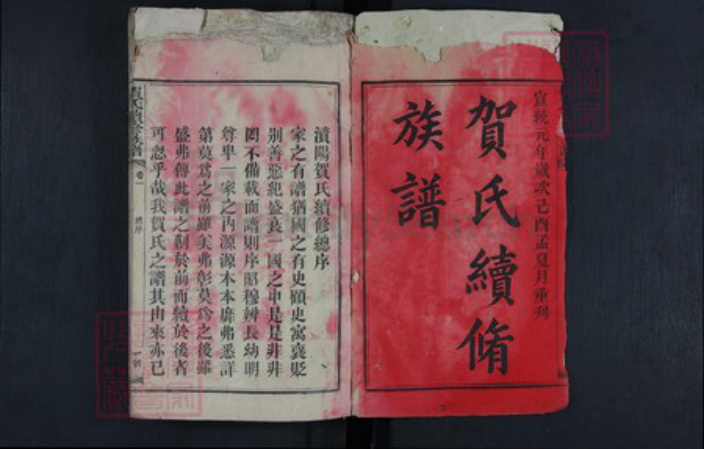 宣統元年歲次己酉孟夏月重刊
賀氏續脩
族譜
濆陽賀氏續修總序
家之有譜猶國之有史顧史寓袞貶
別善惡紀盛衰一國之中是是非非
罔不備載而譜則序昭穆辨長幼明
尊卑一家之內源源本本靡弗悉詳
第莫爲之前雖美弗彰莫爲之後雖
盛弗傳此譜之剏於前而續於後者
可忽乎哉我賀氏之譜其由來亦已
賀氏續修族譜
卷一
總序